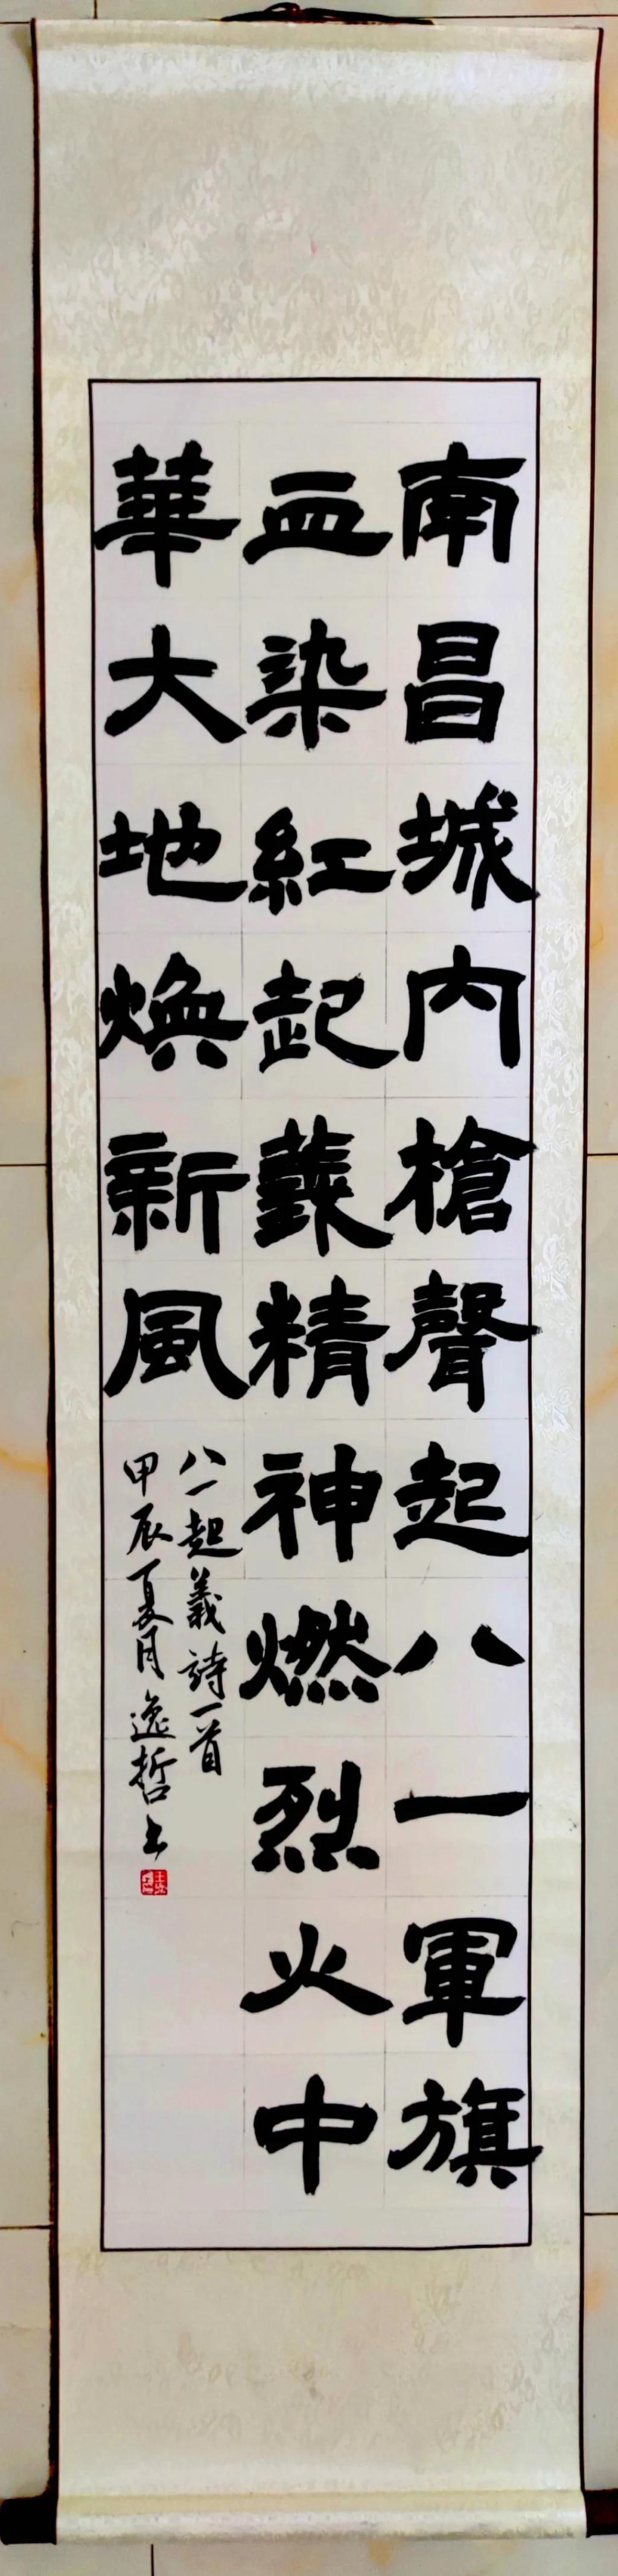 南昌城内槍聲起八一軍旗
血染紅起義精神燃烈火中
華大地焕新風
八一起義詩一首
甲辰夏月逸哲書